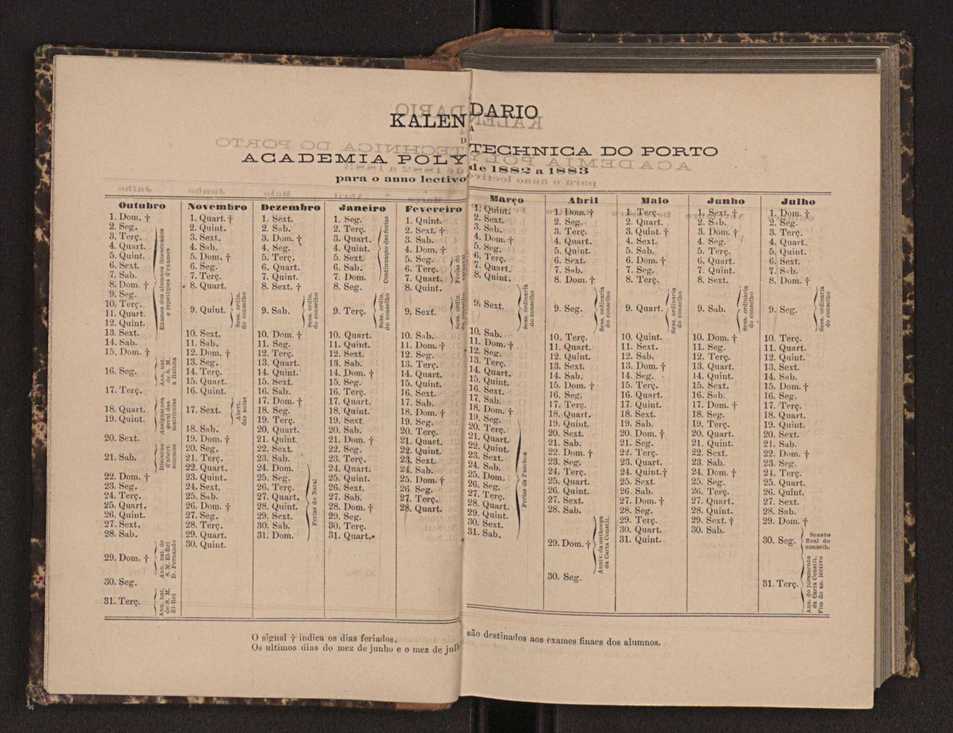 KALENDARIO
DA
ACADEMIA POLYTECHNICA DO PORTO
para o anno lectivo de 1882 a 1883
Outubro
1. Dom. †
2. Seg.
3. Terç.
4. Quart.
5. Quint.
6. Sext.
7. Sab.
8. Dom. †
9. Seg.
10. Terç.
11. Quart.
12. Quint.
13. Sext.
Exames dos alumnos
e repetições d'exames
14. Sab.
15. Dom. †
16. Seg.
Ann. nat.
de S. M.
a Rainha
17. Terç.
18. Quart.
19. Quint.
Abertura
geral das
20. Sext.
21. Sab.
22. Dom. †
23. Seg.
24. Terç.
25. Quart.
26. Quint.
27. Sext.
28. Sab.
29. Dom. †
Ann. nat. de
S. M. El-Rei
D. Fernando
30. Seg.
31. Terç.
Ann. nat.
de S. M.
El-Rei
Novembro
1. Quart. †
2. Quint.
3. Sext.
4. Sab.
5. Dom. †
6. Seg.
7. Terç.
8. Quart.
9. Quint.
Sess. ordin.
do conselho
10. Sext.
11. Sab.
12. Dom. †
13. Seg.
14. Terç.
15. Quart.
16. Quint.
17. Sext.
Abert.
das aulas
18. Sab.
19. Dom. †
20. Seg.
21. Terç.
22. Quart.
23. Quint.
24. Sext.
25. Sab.
26. Dom. †
27. Seg.
28. Terç.
29. Quart.
30. Quint.
Dezembro
1. Sext.
2. Sab.
3. Dom. †
4. Seg.
5. Terç.
6. Quart.
7. Quint.
8. Sext. †
9. Sab.
Sess. ordin.
do conselho
10. Dom. †
11. Seg.
12. Terç.
13. Quart.
14. Quint.
15. Sext.
16. Sab.
17. Dom. †
18. Seg.
19. Terç.
20. Quart.
21. Quint
22. Sext.
23. Sab.
24. Dom.
25. Seg.
26. Terç.
27. Quart.
28. Quint.
29. Sext.
30. Sab.
31. Dom.
Ferias do Natal
Janeiro
1. Seg.
2. Terç.
3. Quart.
4. Quint.
5. Sext.
6. Sab.
7. Dom.
Continuação das ferias
8. Seg.
9. Terç.
Sess. ordin.
do conselho
10. Quart.
11. Quint.
12. Sext.
13. Sab.
14. Dom. †
15. Seg.
16. Terç.
17. Quart.
18. Quint.
19. Sext
20. Sab.
21. Dom. †
22. Seg.
23. Terç.
24. Quart.
25. Quint.
26. Sext.
27. Sab.
28. Dom. †
29. Seg.
30. Terç.
31. Quart.
Fevereiro
1. Quint.
2. Sext. †
3. Sab.
4. Dom. †
5. Seg.
6. Terç.
7. Quart.
Ferias do
8. Quint.
9. Sext.
Sess. ordin.
do conselho
10. Sab.
11. Dom. †
12. Seg.
13. Terç.
14. Quart.
15. Quint.
16. Sext.
17. Sab.
18. Dom. †
19. Seg.
20. Terç.
21. Quart.
22. Quint.
23. Sext.
24. Sab.
25. Dom. †
26 Seg.
27. Terç.
28. Quart.
Março
1. Quint.
2. Sext.
3. Sab.
4. Dom. †
5. Seg.
6. Terç.
7. Quart.
8. Quint.
9. Sext.
Sess. ordinaria
do conselho
10. Sab.
11. Dom. †
12. Seg.
13. Terç.
14. Quart.
15. Quint.
16. Sext.
17. Sab.
18. Dom. †
19. Seg.
20. Terç.
21. Quart.
22. Quint.
23. Sext.
24. Sab.
25. Dom.
26. Seg.
27. Terç.
28. Quart.
29. Quint.
30. Sext.
31. Sab.
Ferias da Paschoa
Abril
1. Dom. †
2. Seg.
3. Terç.
4. Quart.
5. Quint.
6. Sext.
7. Sab.
8. Dom. †
9. Seg.
Sess. ordinaria
do conselho
10. Terç.
11. Quart.
12. Quint.
13. Sext.
14. Sab.
15. Dom. †
16. Seg.
17. Terç.
18. Quart.
19. Quint.
20. Sext.
21. Sab.
22. Dom. †
23. Seg.
24. Terç.
25. Quart.
26. Quint.
27. Sext.
28. Sab.
29. Dom. †
Anniv. da outhorga
da Carta Constit.
30. Seg.
Maio
1. Terç.
2. Quart.
3. Quint. †
4. Sext.
5. Sab.
6. Dom. †
7. Seg.
8. Terç.
9. Quart.
Sess. ordinaria
do conselho
10. Quint.
11. Sext.
12. Sab.
13. Dom. †
14. Seg.
15. Terç.
16. Quart.
17. Quint.
18. Sext.
19. Sab.
20. Dom. †
21. Seg.
22. Terç.
23. Quart.
24. Quint. †
25. Sext.
26. Sab.
27. Dom. †
28. Seg.
29. Terç.
30. Quart.
31. Quint.
Junho
1. Sext. †
2. Sab.
3. Dom. †
4. Seg.
5. Terç.
6. Quart.
7. Quint.
8. Sext.
9. Sab.
Sess. ordinaria
do conselho
10. Dom. †
11. Seg.
12. Terç.
13. Quart.
14. Quint.
15. Sext.
16. Sab.
17. Dom. †
18. Seg.
19. Terç.
20. Quart.
21. Quint.
22. Sext.
23. Sab.
24. Dom. †
25. Seg.
26. Terç.
27. Quart.
28. Quint.
29. Sext. †
30. Sab.
Julho
1. Dom. †
2. Seg.
3. Terç.
4. Quart.
5. Quint.
6. Sext.
7. Sab.
8. Dom. †
9. Seg.
Sess. ordinaria
do conselho
10. Terç.
11. Quart.
12. Quint.
13. Sext.
14. Sab.
15. Dom. †
16. Seg.
17. Terç.
18. Quart.
19. Quint.
20. Sext.
21. Sab.
22. Dom. †
23. Seg.
24. Terç.
25. Quart.
26. Quint.
27. Sext.
28. Sab.
29. Dom. †
30. Seg.
Sessão
final do
conselh.
31. Terç.
Ann. do juramento
da Carta Constit.
Fim do an. lectivo
O signal † indica os dias feriados.
Os ultimos dias do mez de junho e o mez de julh são destinados aos exames finaes dos alumnos.